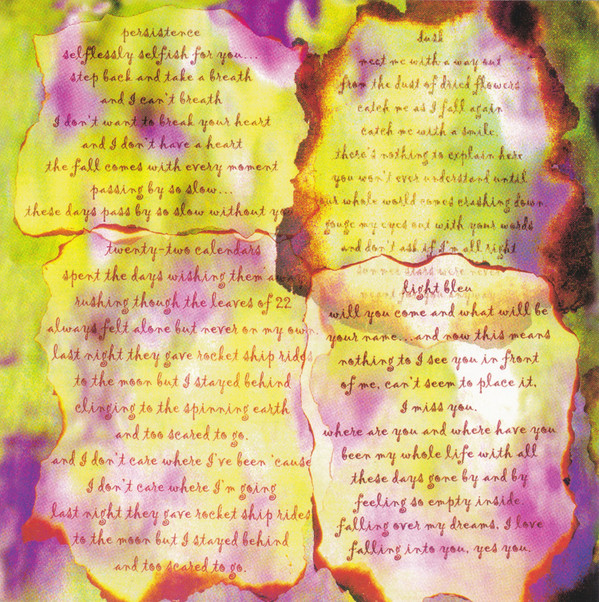 persistence
selflessly selfish for you...
step back and take a breath
and I can't breath
I don't want to break your heart
and I don't have a heart
the fall comes with every moment
passing by so slow...
these days pass by so slow without you
dusk
meet me with a way out
from the dust of dried flowers
catch me as I fall again
catch me with a smile.
there's nothing to explain here
you won't ever understand until
your whole world comes crashing down.
gouge my eyes out with your words
and don't ask if I'm all right
summer stars were never
meant for you anyway
twenty-two calendars
spent the days wishing them away
rushing though the leaves of 22
always felt alone but never on my own.
last night they gave rocket ship rides
to the moon but I stayed behind
clinging to the spinning earth
and too scared to go.
and I don't care where I've been 'cause
I don't care where I'm going
last night they gave rocket ship rides
to the moon but I stayed behind
and too scared to go.
light bleu
will you come and what will be
your name...and now this means
nothing to I see you in front
of me, can't seem to place it,
I miss you.
where are you and where have you
been my whole life with all
these days gone by and by
feeling so empty inside.
falling over my dreams, I love
falling into you, yes you.